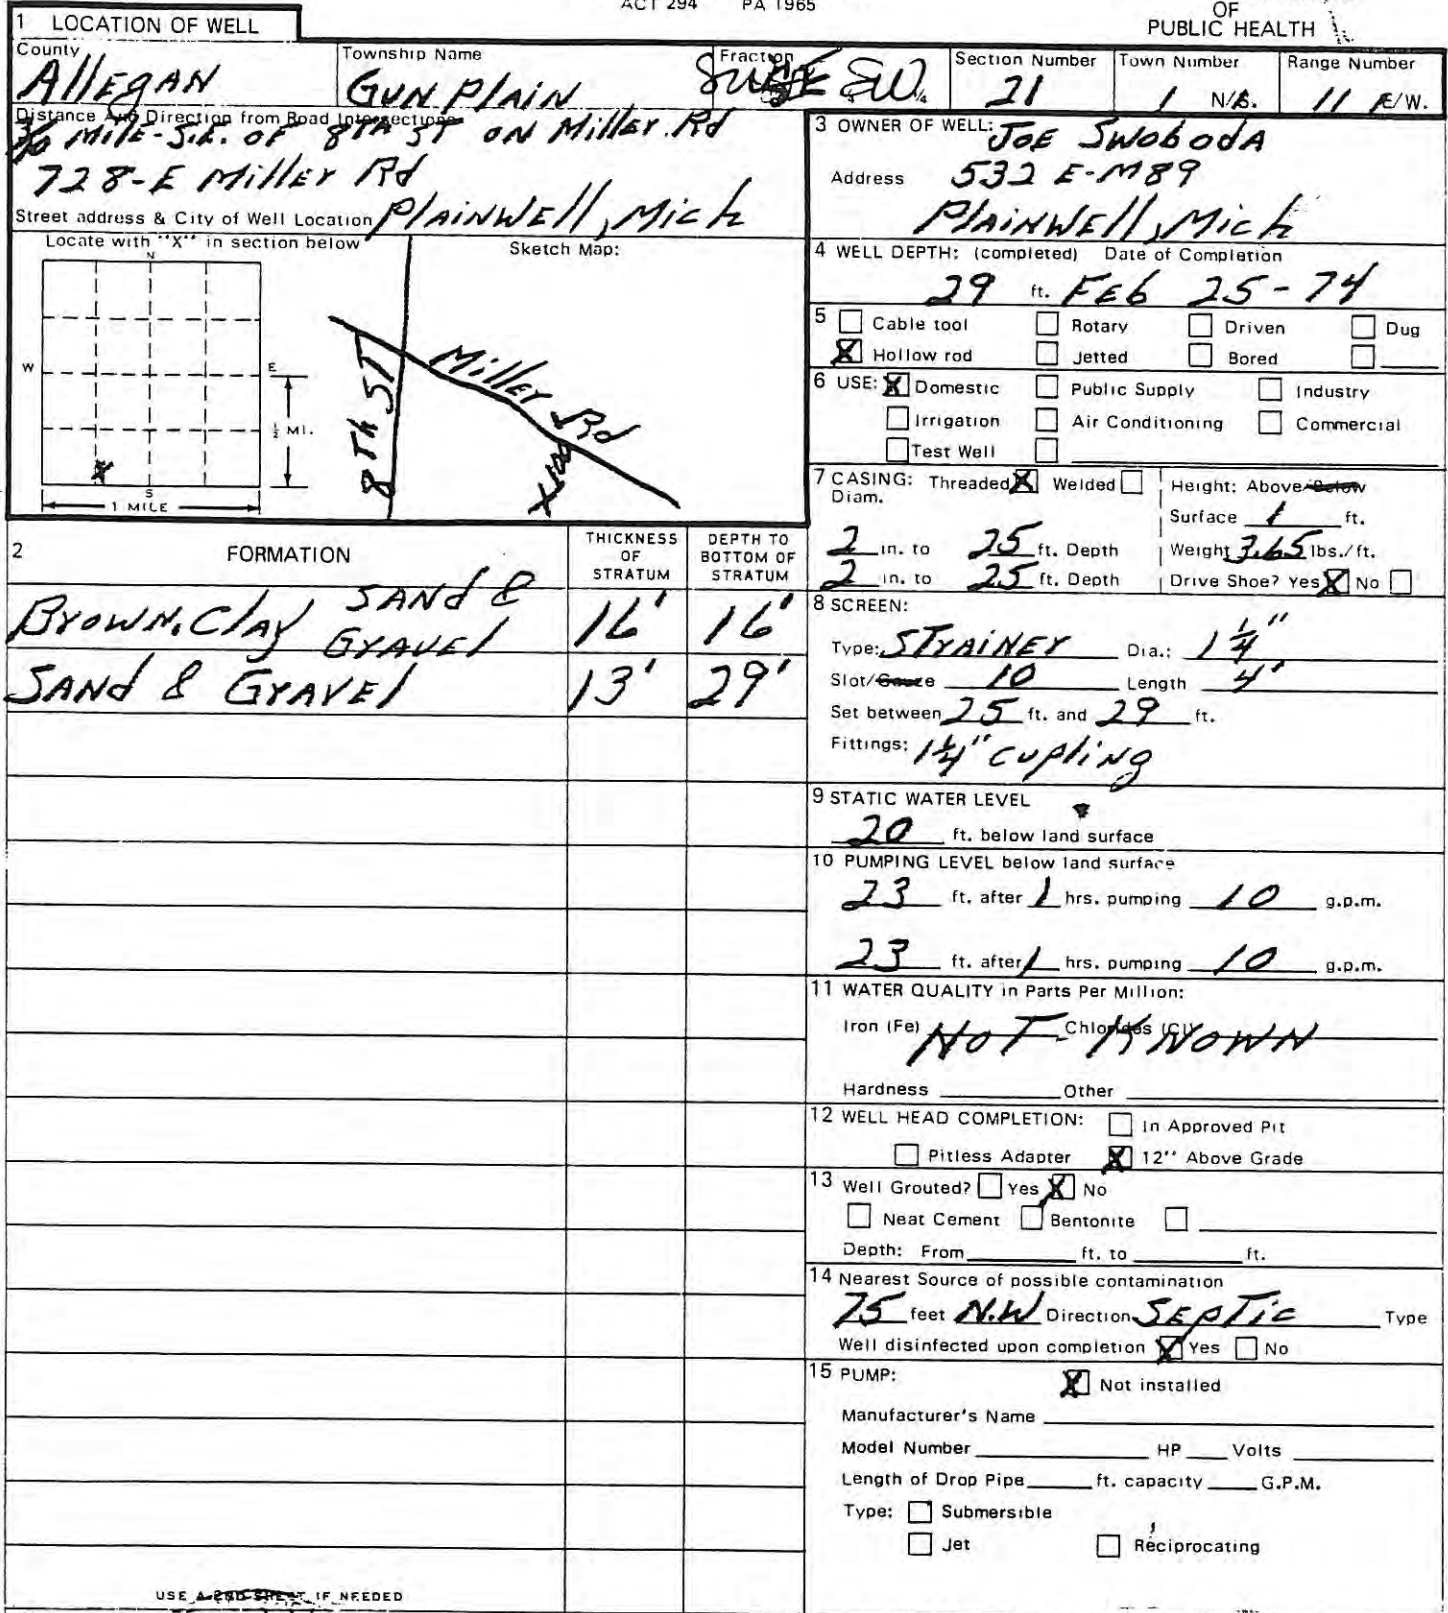 ACT 294 PA 1965
OF
PUBLIC HEALTH
1 LOCATION OF WELL
County
Allegan
Township Name
Gun Plain
Fraction
SW
Section Number
21
Town Number
1 N/S.
Range Number
11 E/W.
Distance And Direction from Road Intersections
Mile-S.E. of 8th ST on Miller Rd
728-E Miller Rd
Street address & City of Well Location Plainwell, Mich
Locate with "X" in section below
Sketch Map:
N
W
E
S
½ MI.
1 MILE
X
8th ST
Miller Rd
X 100
3 OWNER OF WELL: Joe Swoboda
Address 532 E-M89
Plainwell, Mich
4 WELL DEPTH: (completed) Date of Completion
29 ft. Feb 25-74
5 Cable tool Rotary Driven Dug
X Hollow rod Jetted Bored
6 USE: X Domestic Public Supply Industry
Irrigation Air Conditioning Commercial
Test Well
7 CASING: Threaded X Welded
Diam.
2 in. to 25 ft. Depth
2 in. to 25 ft. Depth
Height: Above/Below
Surface 1 ft.
Weight 3.65 lbs./ft.
Drive Shoe? Yes X No
2 FORMATION
THICKNESS OF STRATUM
DEPTH TO BOTTOM OF STRATUM
Brown, Clay Sand & Gravel 16' 16'
Sand & Gravel 13' 29'
8 SCREEN:
Type: Strainer Dia.: 1 1/4"
Slot/Gauze 10 Length 4'
Set between 25 ft. and 29 ft.
Fittings: 1 1/4" cupling
9 STATIC WATER LEVEL
20 ft. below land surface
10 PUMPING LEVEL below land surface
23 ft. after 1 hrs. pumping 10 g.p.m.
23 ft. after 1 hrs. pumping 10 g.p.m.
11 WATER QUALITY in Parts Per Million:
Iron (Fe) Chlorides (Cl)
NOT-KNOWN
Hardness Other
12 WELL HEAD COMPLETION: In Approved Pit
Pitless Adapter X 12" Above Grade
13 Well Grouted? Yes X No
Neat Cement Bentonite
Depth: From ft. to ft.
14 Nearest Source of possible contamination
75 feet N.W Direction Septic Type
Well disinfected upon completion X Yes No
15 PUMP: X Not installed
Manufacturer's Name
Model Number HP Volts
Length of Drop Pipe ft. capacity G.P.M.
Type: Submersible
Jet Reciprocating
USE A 2ND SHEET IF NEEDED